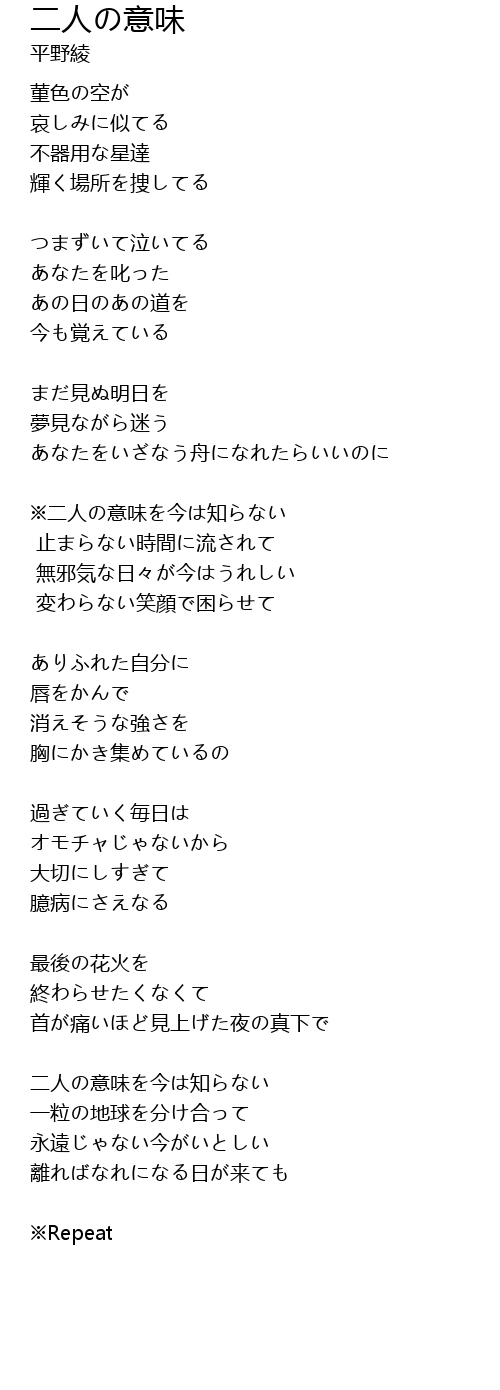 二人の意味
平野綾
菫色の空が
哀しみに似てる
不器用な星達
輝く場所を捜してる
つまずいて泣いてる
あなたを叱った
あの日のあの道を
今も覚えている
まだ見ぬ明日を
夢見ながら迷う
あなたをいざなう舟になれたらいいのに
※二人の意味を今は知らない
止まらない時間に流されて
無邪気な日々が今はうれしい
変わらない笑顔で困らせて
ありふれた自分に
唇をかんで
消えそうな強さを
胸にかき集めているの
過ぎていく毎日は
オモチャじゃないから
大切にしすぎて
臆病にさえなる
最後の花火を
終わらせたくなくて
首が痛いほど見上げた夜の真下で
二人の意味を今は知らない
一粒の地球を分け合って
永遠じゃない今がいとしい
離ればなれになる日が来ても
※Repeat